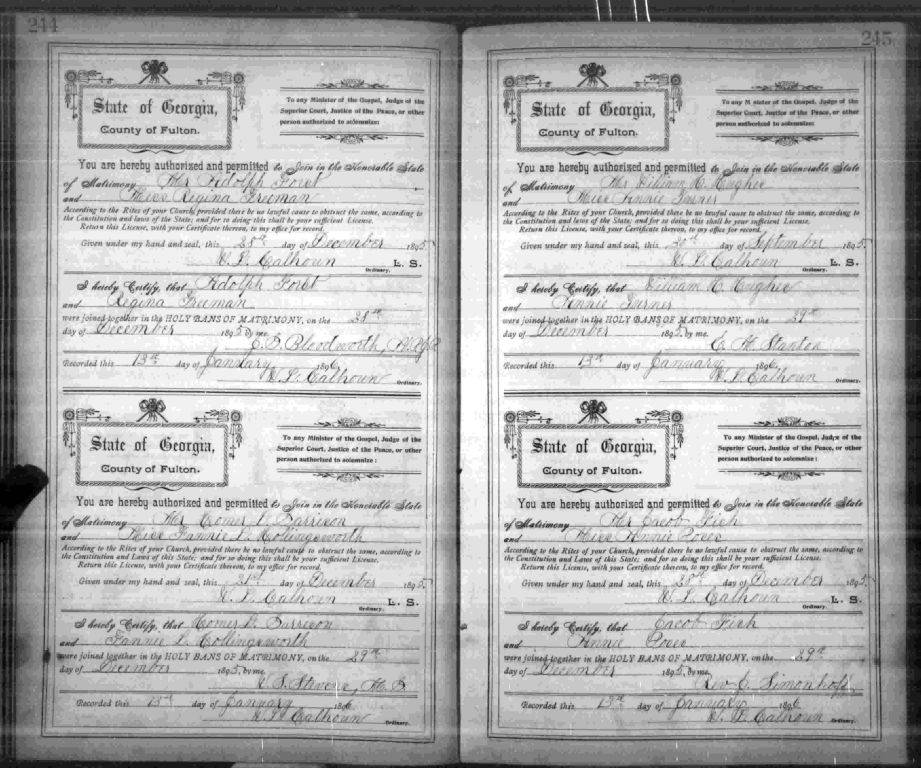 244
State of Georgia,
County of Fulton.
To any Minister of the Gospel, Judge of the
Superior Court, Justice of the Peace, or other
person authorized to solemnize:
You are hereby authorized and permitted to Join in the Honorable State
of Matrimony Mr Adolph Forst
and Miss Regina Freeman
According to the Rites of your Church, provided there be no lawful cause to obstruct the same, according to
the Constitution and laws of the State; and for so doing this shall be your sufficient License.
Return this License, with your Certificate thereon, to my office for record.
Given under my hand and seal, this day of December 1895
W. L. Calhoun L. S.
Ordinary.
I hereby Certify, that Adolph Forst
and Regina Freeman
were joined together in the HOLY BANS OF MATRIMONY, on the
day of December 1895 by me.
Bloodworth,
Recorded this 13th day of January 1896
W. L. Calhoun Ordinary.
State of Georgia,
County of Fulton.
To any Minister of the Gospel, Judge of the
Superior Court, Justice of the Peace, or other
person authorized to solemnize:
You are hereby authorized and permitted to Join in the Honorable State
of Matrimony Mr Homer V.
and Miss Fannie L. Hollingsworth
According to the Rites of your Church, provided there be no lawful cause to obstruct the same, according to
the Constitution and Laws of this State; and for so doing this shall be your sufficient License.
Return this License, with your Certificate thereon, to my office for record.
Given under my hand and seal, this 21st day of December 1895
W. L. Calhoun L. S.
Ordinary.
I hereby Certify, that Homer V.
and Fannie L. Hollingsworth
were joined together in the HOLY BANS OF MATRIMONY, on the 29th
day of December 1895, by me.
Recorded this 13th day of January 1896
W. L. Calhoun Ordinary.
245
State of Georgia,
County of Fulton.
To any Minister of the Gospel, Judge of the
Superior Court, Justice of the Peace, or other
person authorized to solemnize:
You are hereby authorized and permitted to Join in the Honorable State
of Matrimony Mr William H. Hughie
and Miss Annie Turner
According to the Rites of your Church, provided there be no lawful cause to obstruct the same, according to
the Constitution and laws of the State; and for so doing this shall be your sufficient License.
Return this License, with your Certificate thereon, to my office for record.
Given under my hand and seal, this day of September 1895
W. L. Calhoun L. S.
Ordinary.
I hereby Certify, that William H. Hughie
and Annie Turner
were joined together in the HOLY BANS OF MATRIMONY, on the 29th
day of December 1895 by me.
Stanton
Recorded this 13th day of January 1896
W. L. Calhoun Ordinary.
State of Georgia,
County of Fulton.
To any Minister of the Gospel, Judge of the
Superior Court, Justice of the Peace, or other
person authorized to solemnize:
You are hereby authorized and permitted to Join in the Honorable State
of Matrimony Mr Jacob
and Miss Annie
According to the Rites of your Church, provided there be no lawful cause to obstruct the same, according to
the Constitution and Laws of this State; and for so doing this shall be your sufficient License.
Return this License, with your Certificate thereon, to my office for record.
Given under my hand and seal, this 28th day of December 1895
W. L. Calhoun L. S.
Ordinary.
I hereby Certify, that Jacob
and Annie
were joined together in the HOLY BANS OF MATRIMONY, on the 29th
day of December 1895, by me.
Rev
Recorded this 13th day of January 1896
W. L. Calhoun Ordinary.